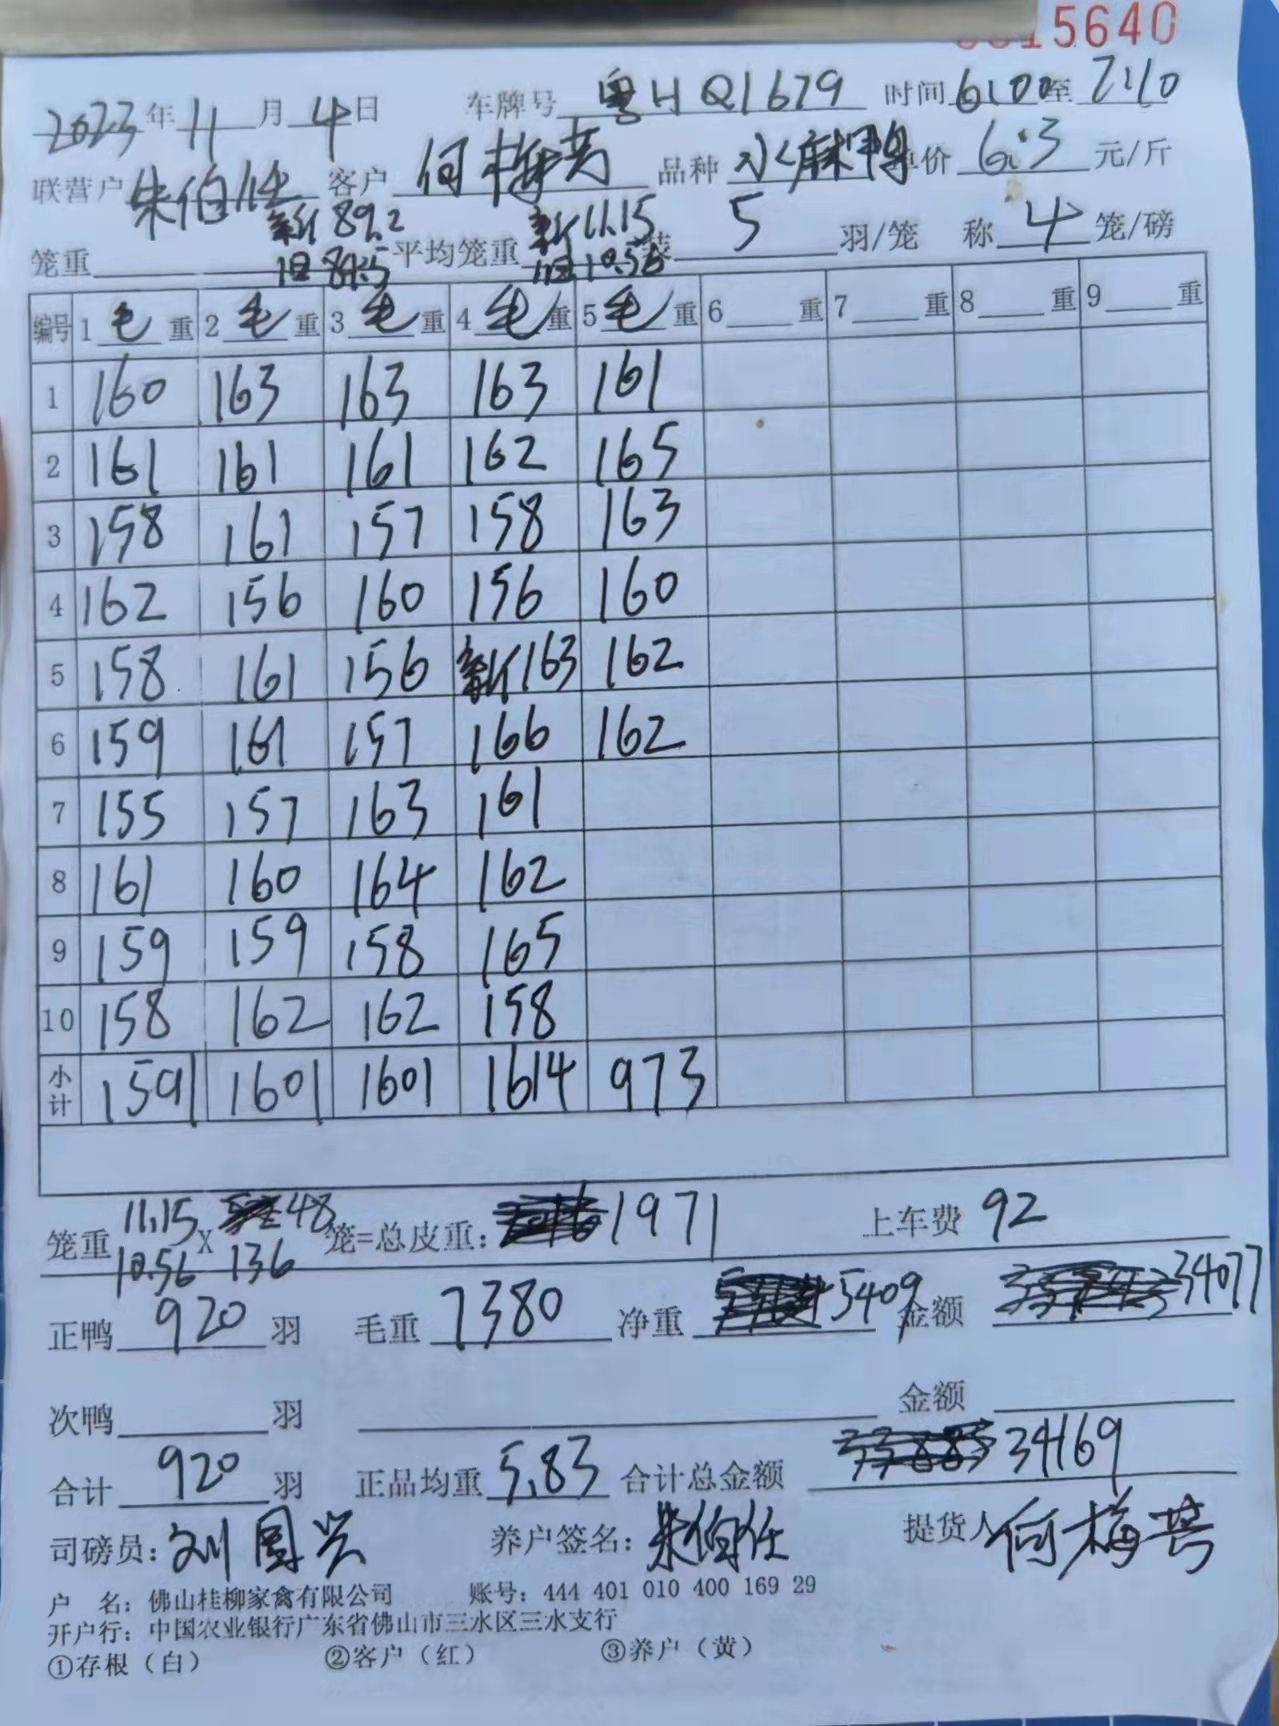 15640
2023年11月4日 车牌号 粤HQ1679 时间6:00至7:10
联营户 朱伯任 客户 何梅芳 品种 水麻鸭 单价 6.3 元/斤
笼重 新89.2 旧84.5 平均笼重 新11.15 旧10.56 装 5 羽/笼 称 4 笼/磅
编号 1毛重 2毛重 3毛重 4毛重 5毛重 6重 7重 8重 9重
1 160 163 163 163 161
2 161 161 161 162 165
3 158 161 157 158 163
4 162 156 160 156 160
5 158 161 156 新163 162
6 159 161 157 166 162
7 155 157 163 161
8 161 160 164 162
9 159 159 158 165
10 158 162 162 158
小计 1591 1601 1601 1614 973
笼重 11.15 X 48 笼=总皮重: 1971 上车费 92
10.56 136
正鸭 920 羽 毛重 7380 净重 5409 金额 34077
次鸭 羽 金额
合计 920 羽 正品均重 5.83 合计总金额 34169
司磅员: 养户签名: 朱伯任 提货人
户 名: 佛山桂柳家禽有限公司 账号: 444 401 010 400 169 29
开户行: 中国农业银行广东省佛山市三水区三水支行
①存根(白) ②客户(红) ③养户(黄)